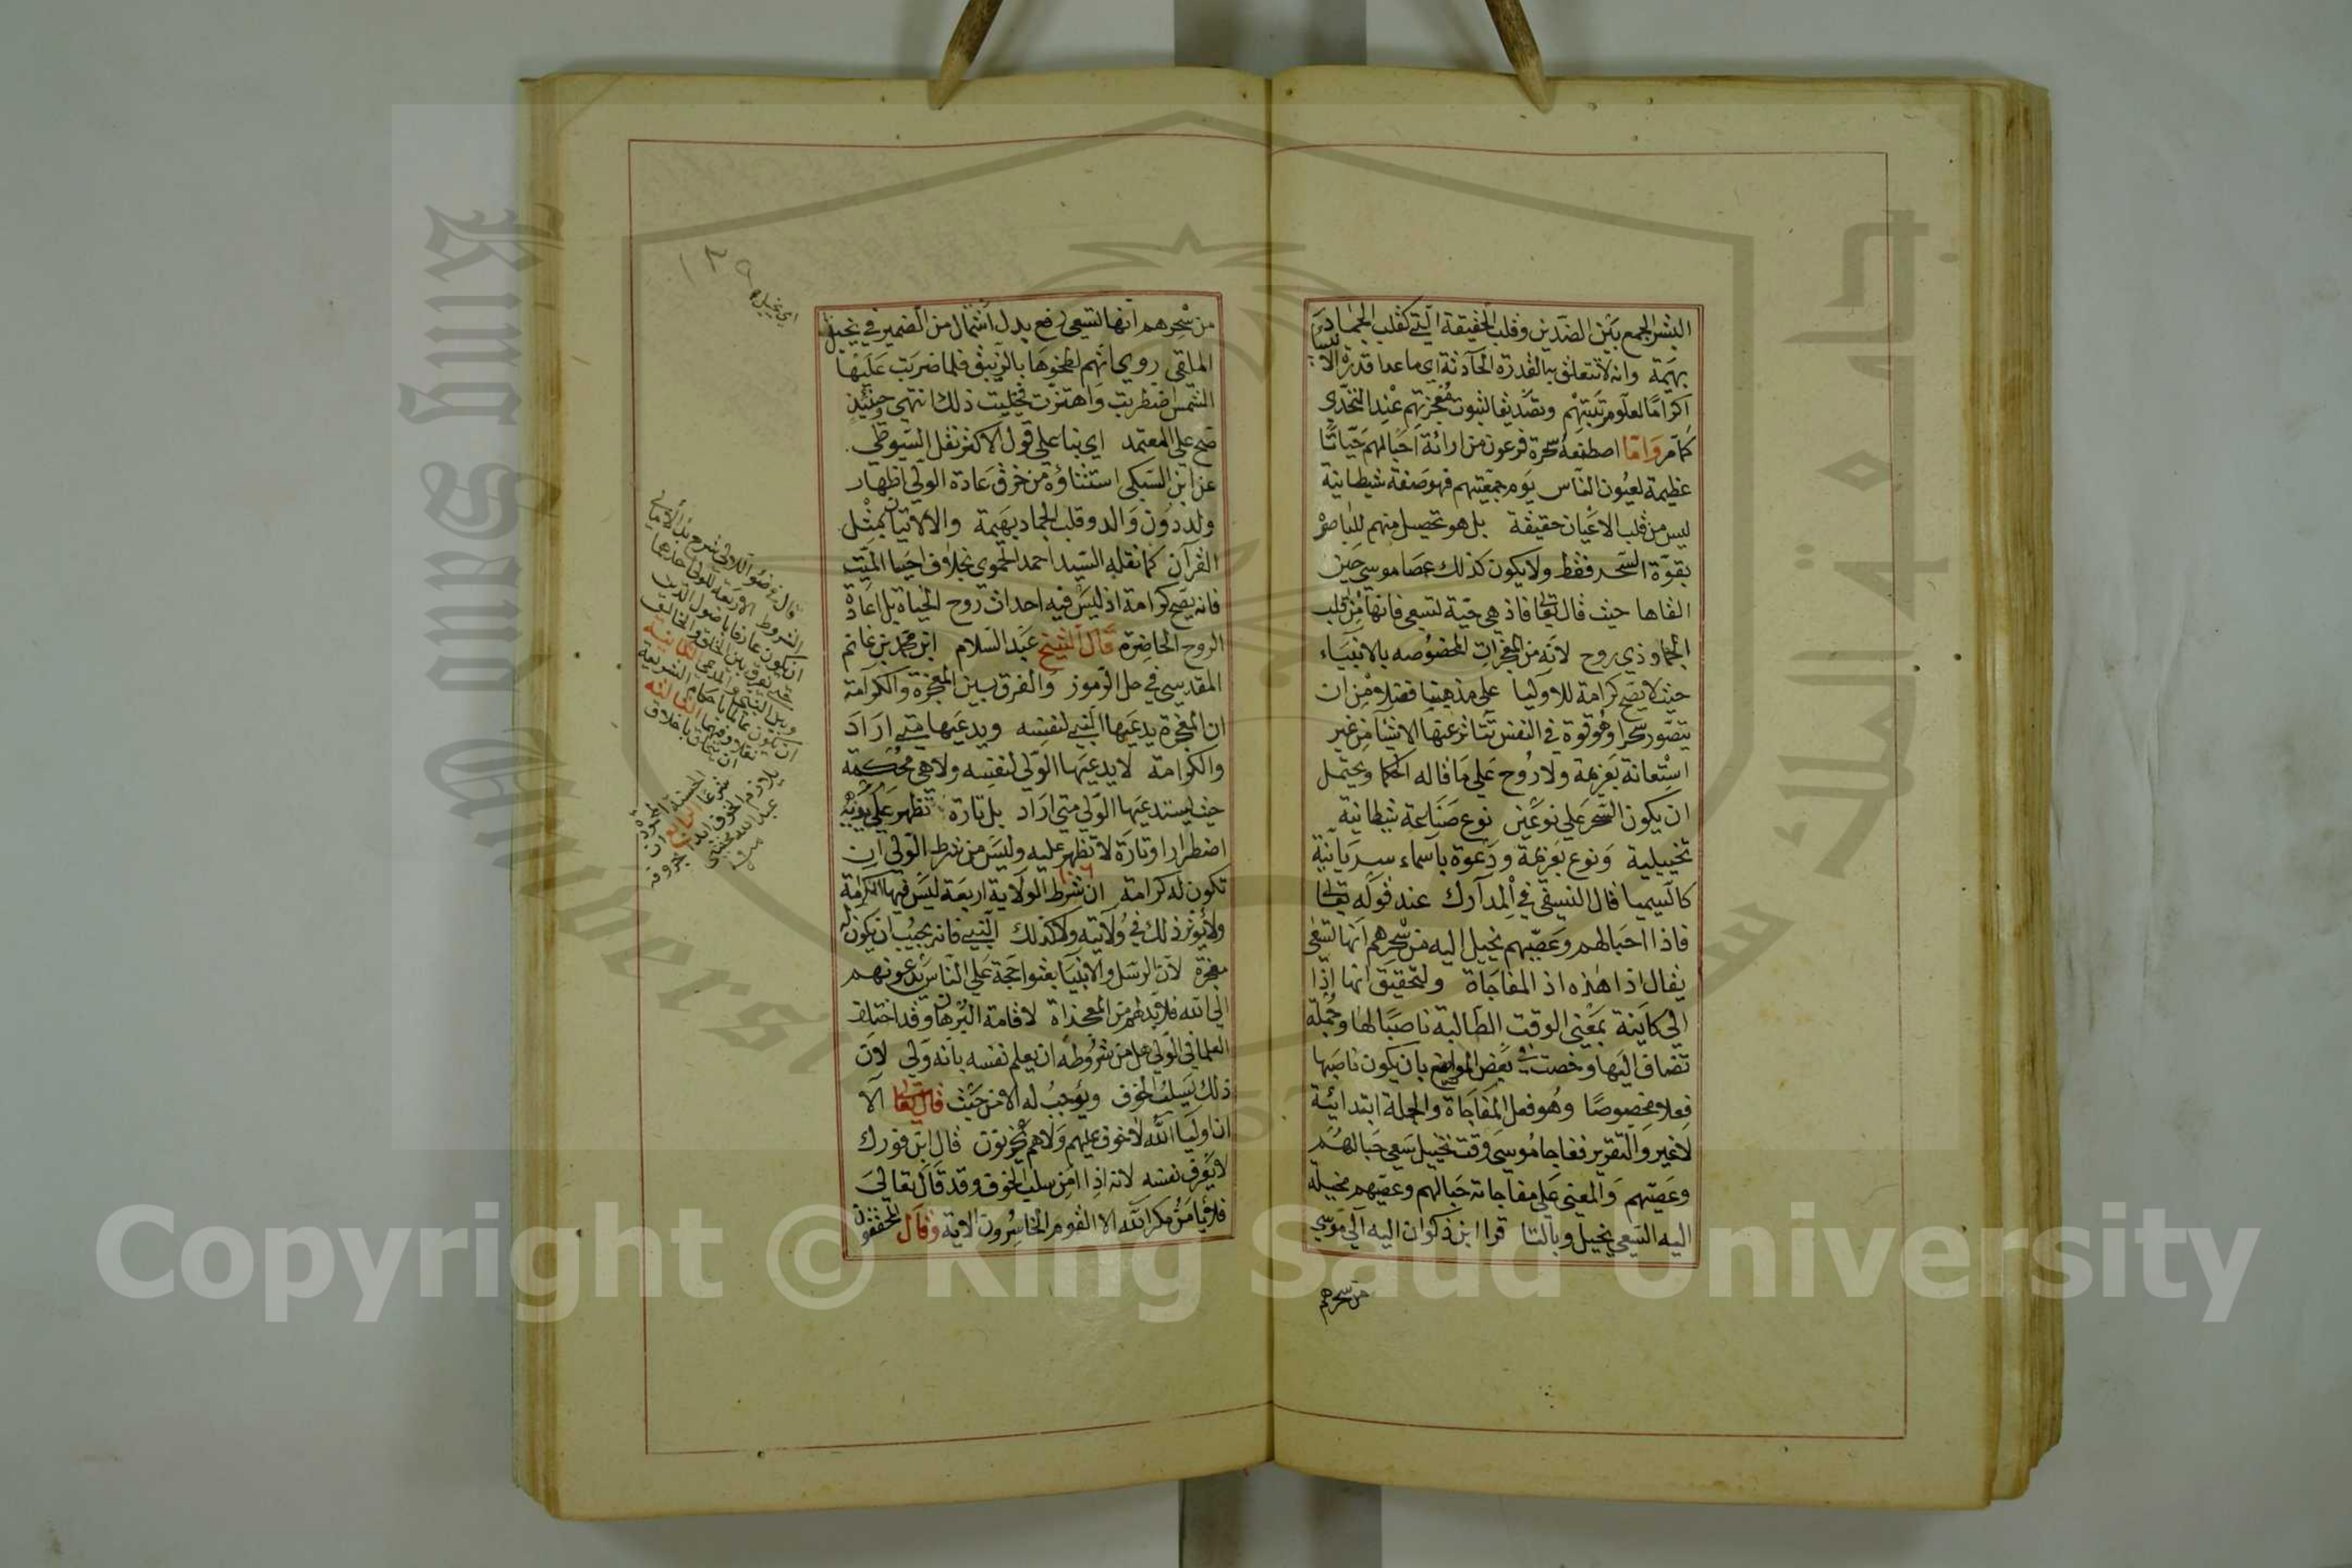 البشر الجمع بين الضدين وقلب الحقيقة التي كقلب الجماد
بهيمة وانه لا تتعلق به القدرة الحادثة اي ما عدا قدرة الانبيا
اكراما لعلو مرتبتهم وتصديقا لثبوت معجزتهم عند التحدي
كما مر واما اصطنعه سحرة فرعون من ارائة احبالهم حياتا
عظيمة لعيون الناس يوم جمعيتهم فهو صنعة شيطانية
ليس من قلب الاعيان حقيقة بل هو تحصيل منهم للباصر
بقوة السحر فقط ولا يكون كذلك عصا موسي حين
القاها حيث قال تعالى فاذ هي حية تسعى فانها من قلب
الجماد ذي روح لانه من المعجزات المخصوصه بالانبياء
حيث لا يصح كرامة للاوليا علي مذهبنا فضلا من ان
يتصور سحرا وهو قوة في النفس تتاثر عنها الاشيا من غير
استعانة بعزيمة ولا روح علي ما قاله الحكما ويحتمل
ان يكون السحر علي نوعين نوع صناعة شيطانية
تخييلية ونوع بعزيمة ودعوة باسماء سريانية
كالسيميا قال النسفي في المدارك عند قوله تعالى
فاذا احبالهم وعصيهم يخيل اليه من سحرهم انها تسعى
يقال اذا هذه اذ المفاجاة والتحقيق انها اذا
الي كاينة بمعني الوقت الطالبة ناصبا لها وجملة
تضاف اليها وخصت في بعض المواضع بان يكون ناصبها
فعلا مخصوصا وهو فعل المفاجاة والجملة ابتدائية
لا غير والتقرير ففاجا موسى وقت تخييل سعي حبالهم
وعصيهم والمعني علي مفاجاته حبالهم وعصيهم مخيلة
اليه السعي يخيل وبالتا قرا ابن ذكوان اليه الي موسي
من سحرهم
من سحرهم انها تسعى رفع بدل اشتمال من الضمير في يخيل
الملقي روي انهم لطخوها بالزيبق فلما ضربت عليها
الشمس اضطربت واهتزت فخيلت ذلك انتهي حينئذ
صح علي المعتمد اي بنا علي قول الاكثر نقل السيوطي
عن ابن السبكي استثناؤه من خرق عادة الولي اظهار
ولد دون والد وقلب الجماد بهيمة والالاتيان بمثل
القران كما نقله السيد احمد الحموي بخلاف احيا الميت
فانه يصح كرامة اذ ليس فيه احداث روح الحياة بل اعادة
الروح الحاضرة قال الشيخ عبد السلام ابن محمد بن غانم
المقدسي في حل الرموز والفرق بين المعجزة والكرامة
ان المعجزة يدعيها النبي لنفسه ويدعيها متي اراد
والكرامة لا يدعيها الولي لنفسه ولا هي محكمة
حيث يستدعيها الولي متي اراد بل تارة تظهر علي يديه
اضطرارا وتارة لا تظهر عليه وليس من شرط الولي ان
تكون له كرامة ان شرط الولاية اربعة ليس فيها الكرامة
ولا يؤثر ذلك في ولايته ولا كذلك النبي فانه يجب ان يكون له
معجزة لان الرسل والانبيا بعثوا حجة علي الناس يدعونهم
الي الله فلا بد لهم من المعجزاة لاقامة البرهان وقد اختلف
العلما في الولي هل من شروطه ان يعلم نفسه بانه ولي لان
ذلك يسلب الخوف ويوجب له الامن حيث قال تعالى الا
ان اوليا الله لا خوف عليهم ولا هم يحزنون قال ابن فورك
لا يعرف نفسه لانه اذا امن سلب الخوف وقد قال تعالى
فلا يامن مكر الله الا القوم الخاسرون الاية وقال المحققون
قال في ضوء اللالي شرح بدء الامالي
الشروط الاربعة للولي احدها
ان يكون عارفا باصول الدين
يفرق بين الخلق والخالق
وبين النبي والمدعي الثانية
ان يكون عالما باحكام الشريعة
نقلا وفهما الثالثه
ان يتخلق باخلاق
شرعا الرابع ان
يلازم الخوف ابدا
Copyright © King Saud University
King Saud University
جامعة الملك سعود
1957